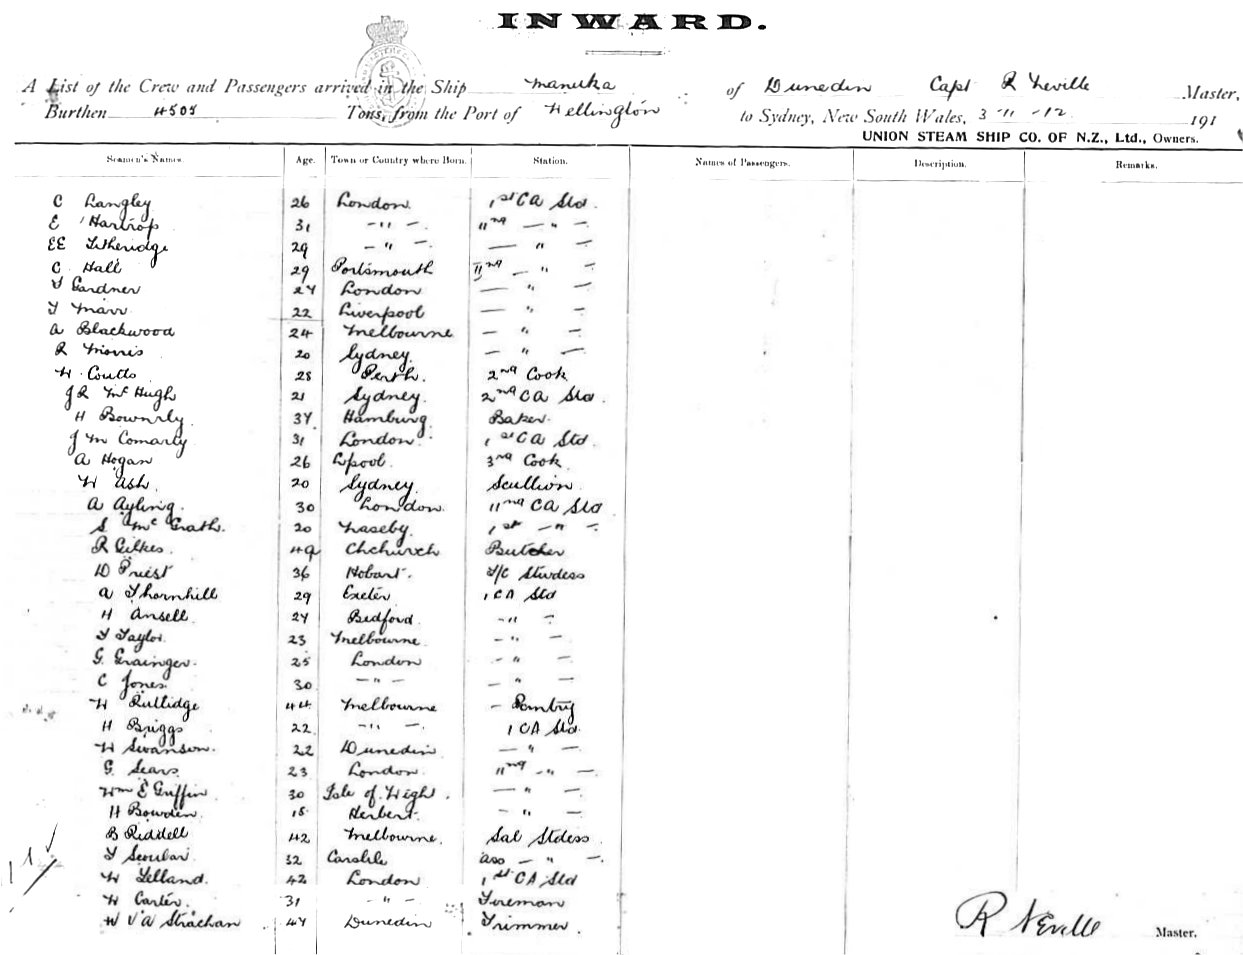 INWARD.
A List of the Crew and Passengers arrived in the Ship Manuka of Dunedin Capt R Neville Master,
Burthen 4505 Tons, from the Port of Wellington to Sydney, New South Wales, 3-11-12 191
UNION STEAM SHIP CO. OF N.Z., Ltd., Owners.
Seamen's Names. Age. Town or Country where Born. Station. Names of Passengers. Description. Remarks.
C Langley 26 London 1st CA Std.
E Hartrop 31 -"- 11nd -"-
EE Titheridge 29 -"- -"-
C Hall 29 Portsmouth 11nd -"-
T Gardner 27 London -"-
T Marr 22 Liverpool -"-
A Blackwood 24 Melbourne -"-
R Morris 20 Sydney. -"-
W Coutts 28 Perth. 2nd Cook
JR McHugh 21 Sydney. 2nd CA Std.
H 37 Hamburg Baker
J M Comarty 31 London 1st CA Std.
A Hogan 26 L'pool. 3rd Cook
W Ash. 20 Sydney Scullion
A Ayling. 30 London. 11nd CA Std
S McGrath. 20 Naseby. 1st -"-
R Gilkes. 49 Chchurch Butcher
D Priest 36 Hobart. T/C Stwdess
A Thornhill 29 Exeter 1 CA Std
H Ansell. 27 Bedford. -"-
T Taylor 23 Melbourne -"-
G. Grainger. 25 London -"-
C Jones 30 -"- -"-
W Rutlidge 44 Melbourne - Pantry
H Briggs 22. -"- 1 CA Std
W Swanson. 22 Dunedin -"-
G. Sears 23 London 11nd -"-
Wm E Griffin 30 Isle of Wight. -"-
H Bowden. 18 Herbert. -"-
B Riddell 42 Melbourne. Sal Stdess
T Scoular 32 Carslile ass -"-
W Lelland. 42 London 1st CA Std
W Carter. 31 -"- Fireman
W V A Strachan 47 Dunedin Trimmer
R Neville Master.